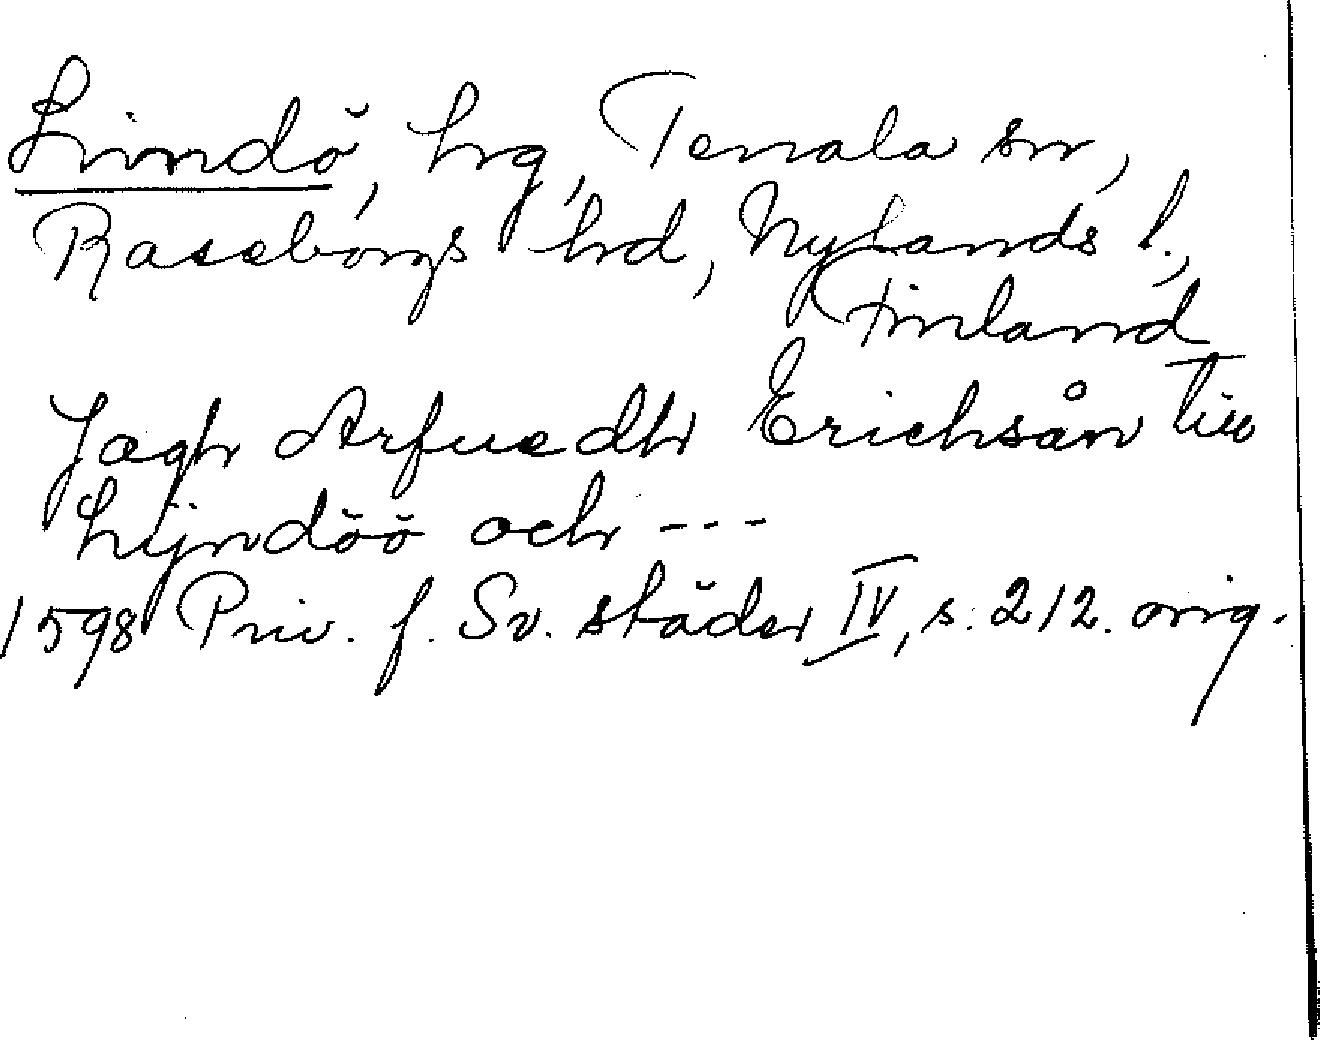 Lindö, hrg, Tenala sn,
Raseborgs hrd, Nylands l.,
Finland
Jagh Arfuedh Erichsån till
Lijndöö och ---
1598 Priv. f. Sv. städer IV, s. 212. orig.